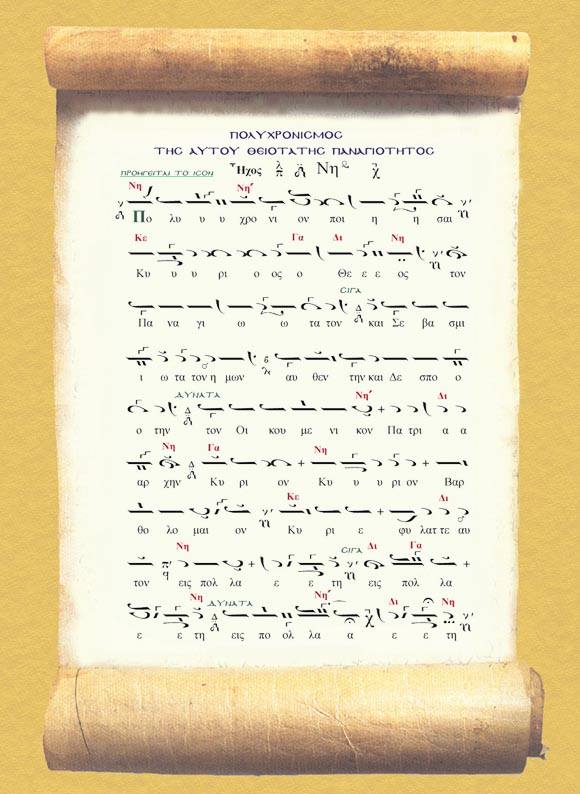 ΠΟΛΥΧΡΟΝΙΣΜΟΣ
ΤΗΣ ΑΥΤΟΥ ΘΕΙΟΤΑΤΗΣ ΠΑΝΑΓΙΟΤΗΤΟΣ
ΠΡΟΗΓΕΙΤΑΙ ΤΟ ΙΣΟΝ Ἦχος Νη
Νη Νη΄
Πο λυ υ υ χρο νι ον ποι η η σαι
Κε Γα Δι Νη
Κυ υ υ ρι ο ος ο Θε ε ε ος τον
ΣΙΓΑ
Πα να γι ω ω τα τον και Σε βα σμι
ι ω τα τον η μων αυ θεν την και Δε σπο ο
ΔΥΝΑΤΑ Νη΄ Δι
ο την τον Οι κου με νι κον Πα τρι α α
Νη Γα Νη
αρ χην Κυ ρι ον Κυ υ υ ρι ον Βαρ
Κε Δι
θο λο μαι ον Κυ ρι ε φυ λατ τε αυ
Νη ΣΙΓΑ Δι Γα
τον εις πολ λα ε ε τη εις πολ λα
Νη ΔΥΝΑΤΑ Νη΄ Δι Νη
ε ε τη εις πο ολ λα α ε ε τη